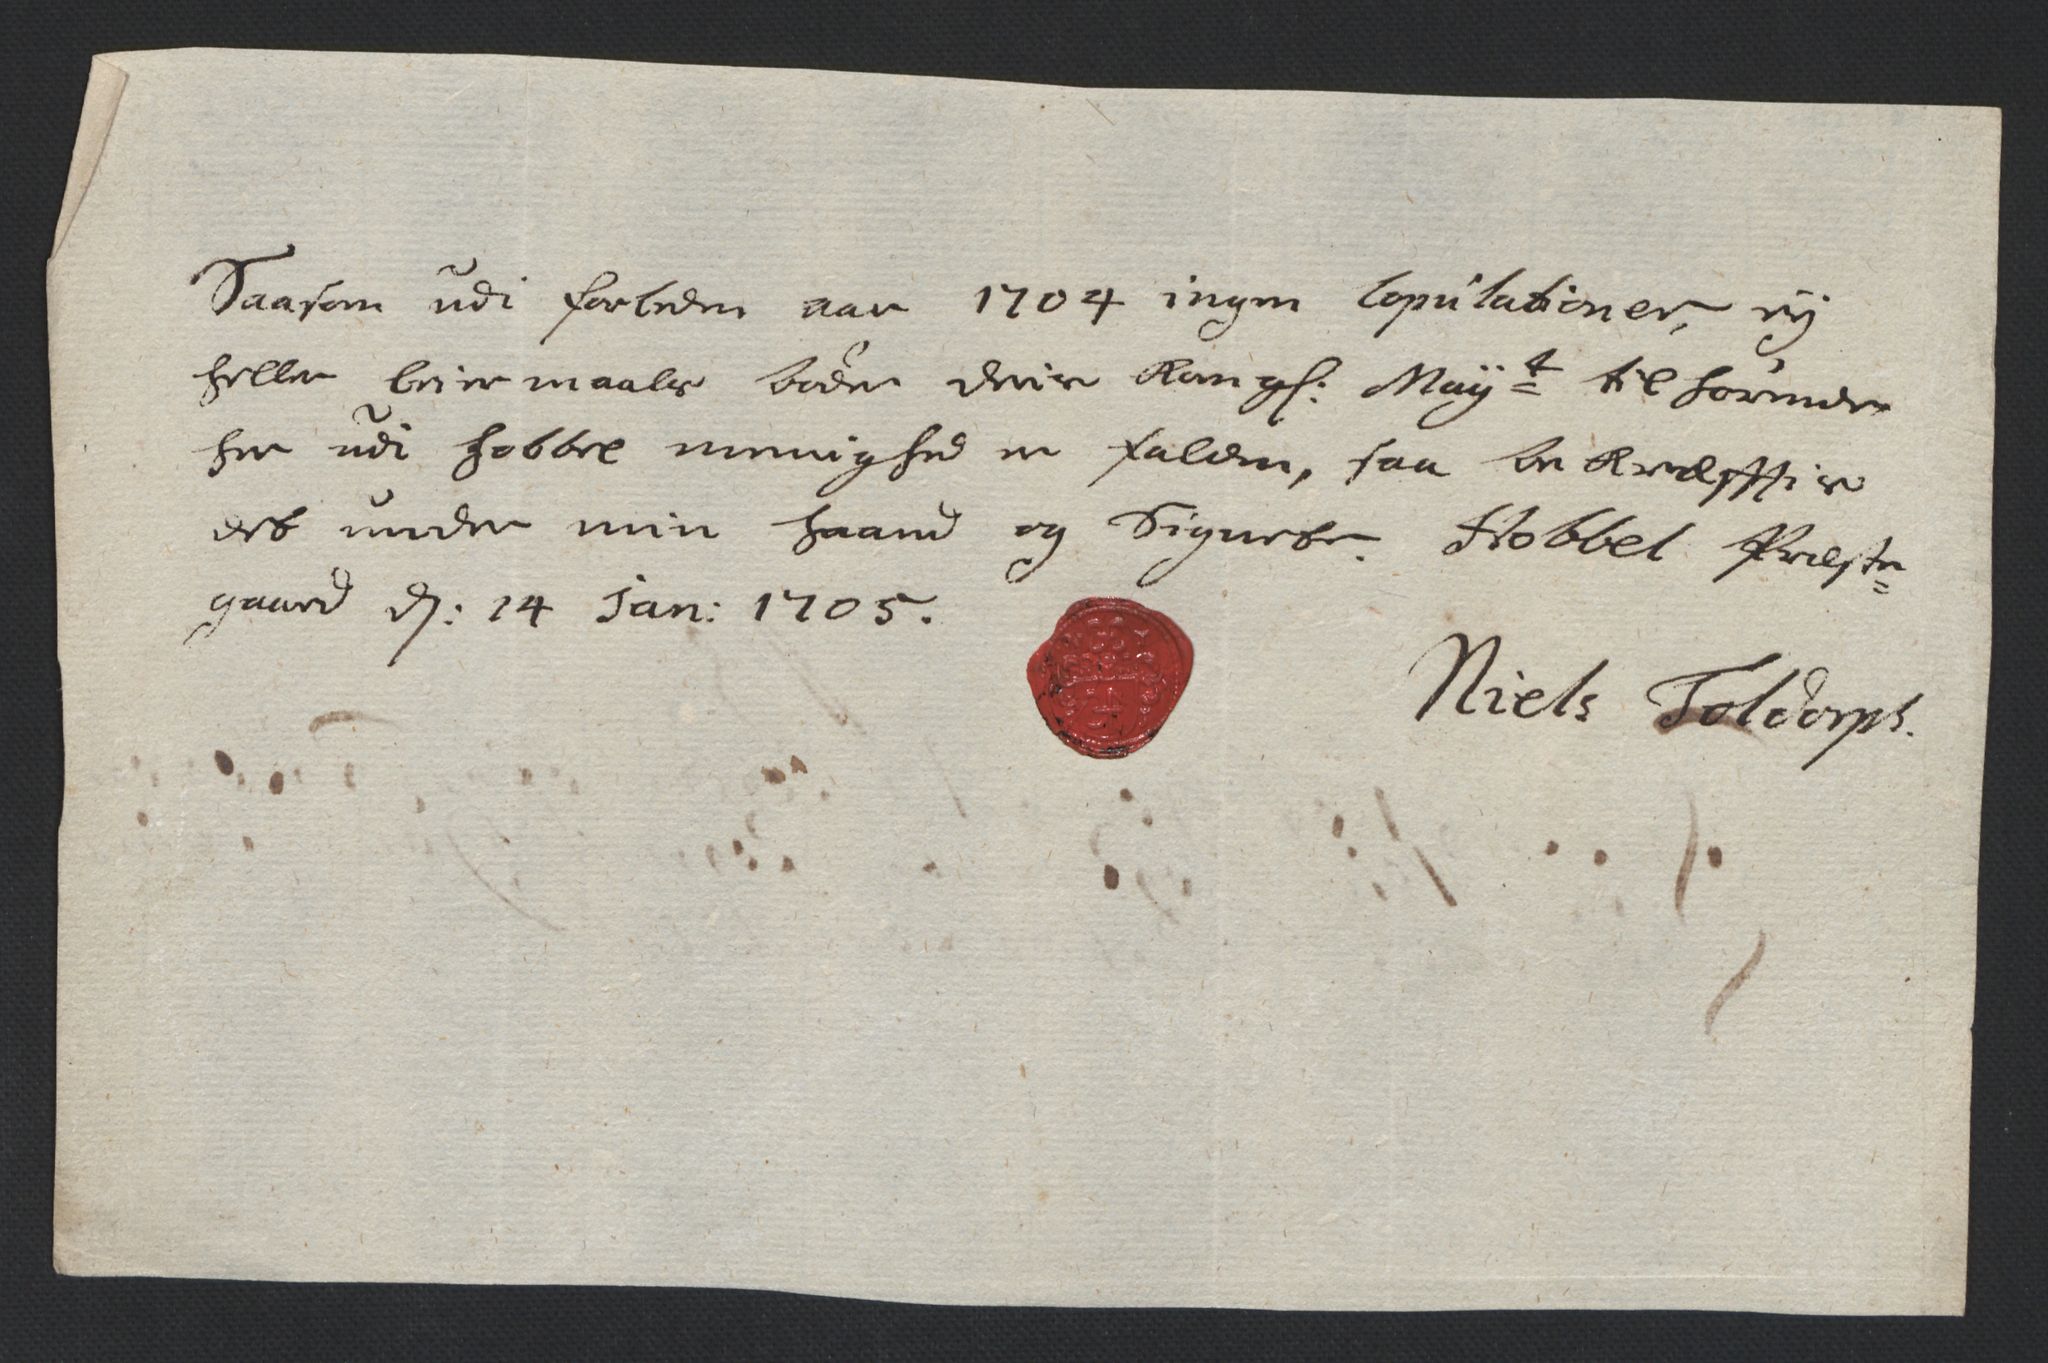 Saasom udi forleden aar 1704 ingen Copulationer, eÿ
heller leiermaals bøder deris Kongl: Maÿt til hørende
her udi Hobbel menighed er falden, saa bekræfftis
det under min haand og Signete. Hobbel Præste=
gaard d: 14 Jan: 1705.
Niels Toldorph.